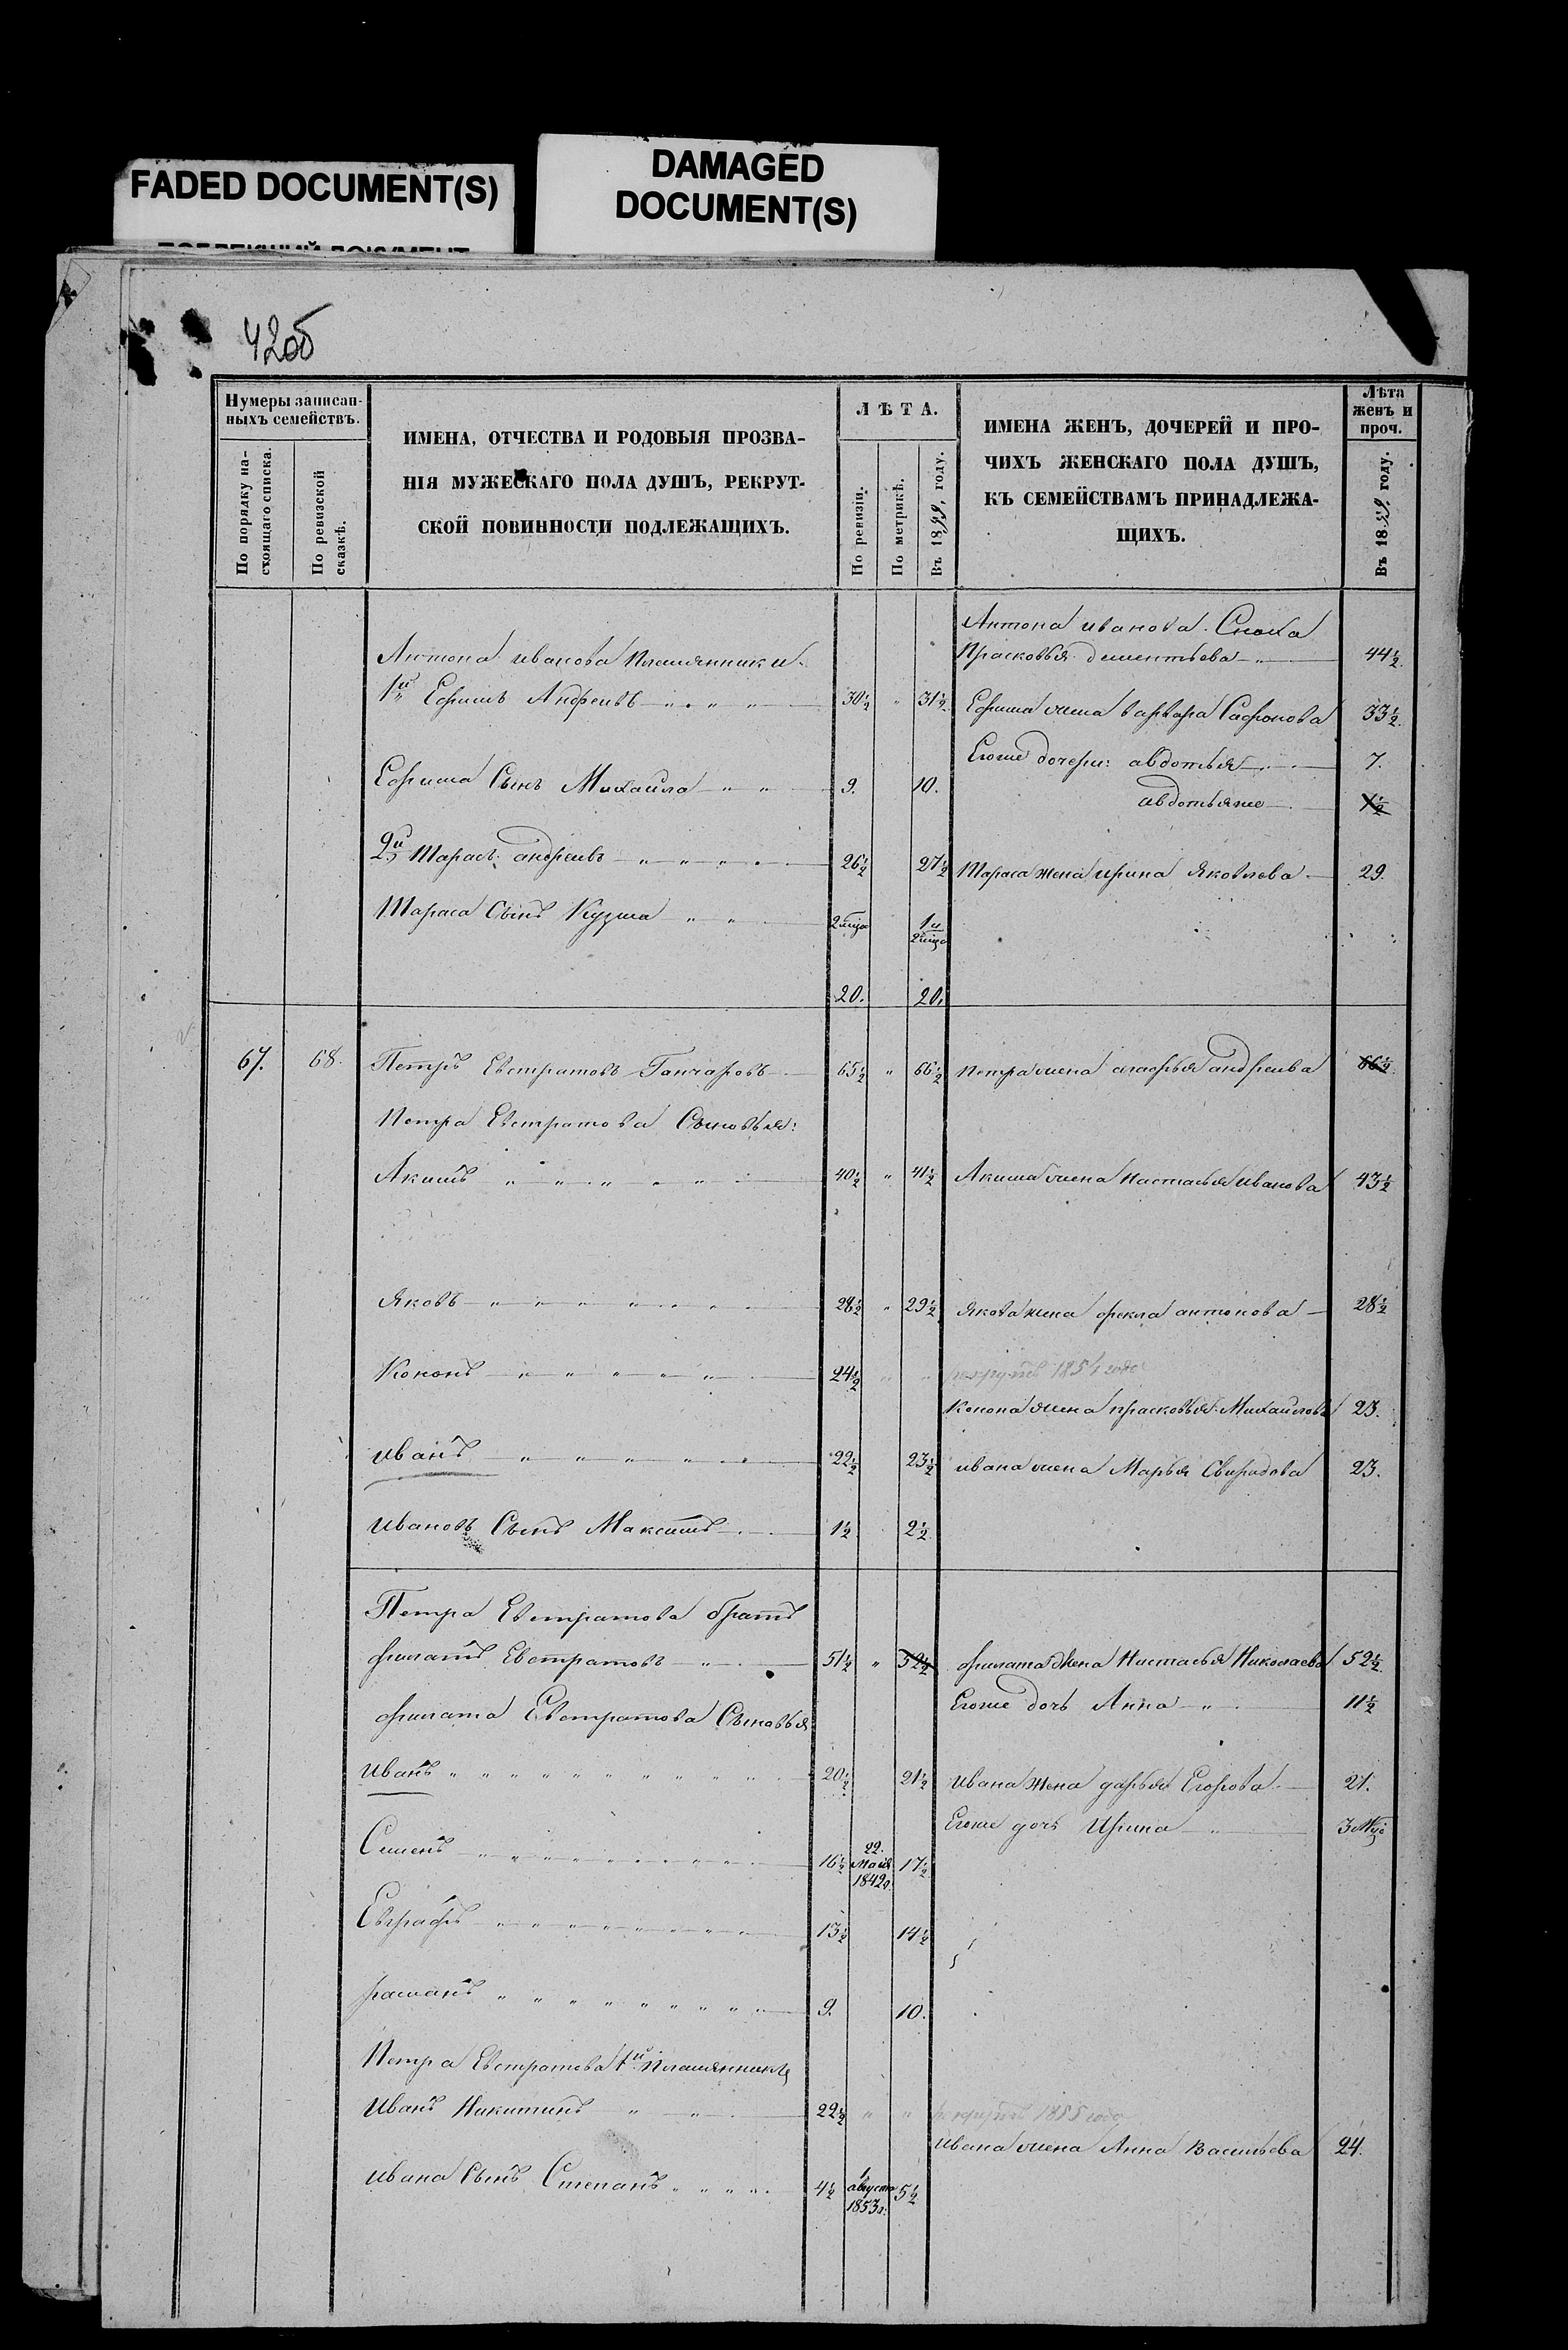 FADED DOCUMENT(S)
DAMAGED
DOCUMENT(S)
42об
Нумеры записан-
ныхъ семействъ.
По порядку на-
стоящаго списка.
По ревизской
сказкѣ.
ИМЕНА, ОТЧЕСТВА И РОДОВЫЯ ПРОЗВА-
НІЯ МУЖЕСКАГО ПОЛА ДУШЪ, РЕКРУТ-
СКОЙ ПОВИННОСТИ ПОДЛЕЖАЩИХЪ.
ЛѢТА.
По ревизіи.
По метрикѣ.
Въ 1859, году.
ИМЕНА ЖЕНЪ, ДОЧЕРЕЙ И ПРО-
ЧИХЪ ЖЕНСКАГО ПОЛА ДУШЪ,
КЪ СЕМЕЙСТВАМЪ ПРИНАДЛЕЖА-
ЩИХЪ.
Лѣта
женъ и
проч.
Въ 1859, году.
Антона иванова Сноха
Антона иванова племянники
Прасковья дементьева 44½
1й Ефимъ Андреивъ 30½ " 31½
Ефима жена варвара Сафонова 33½
Егоже дочери: авдотья 7.
Ефима Сынъ Михайла 9. 10.
авдотьяже 1½
2й Тарасъ андреивъ 26½ 27½ Тараса жена ирина Яковлева 29
Тараса Сынъ Кузма 2 мѣца 1 и 2 мѣца
20. 20.
67. 68. Петръ Евстратовъ Ганчаровъ 65½ " 66½ петра жена агафья андреива 66½
Петра Евстратова Сыновья:
Акимъ 40½ " 41½ Акима жена настасья иванова 43½
Яковъ 28½ " 29½ Якова жена фекла антонова 28½
Кононъ 24½ " " рекрутъ 1854 года
Конона жена прасковья Михайлова 23.
иванъ 22½ 23½ ивана жена Марья Свиридова 23.
ивановъ Сынъ Максимъ 1½ 2½
Петра Евстратова братъ
филатъ Евстратовъ 51½ " 52½ филата Жена Настасья Николаева 52½
Егоже дочь Анна 11½
филата Евстратова Сыновья
иванъ 20½ 21½ ивана Жена дарья Егорова 21.
Егоже дочь Ирина 3 мѣц
Семенъ 16½ 22 мая 1842г. 17½
Евграфъ 13½ 14½
раманъ 9. 10.
Петра Евстратова 1й племянникъ
иванъ Никитинъ 22½ " " рекрутъ 1855 года
ивана жена Анна васильева 24.
ивана Сынъ Степанъ 4½ 1 августа 1853г: 5½